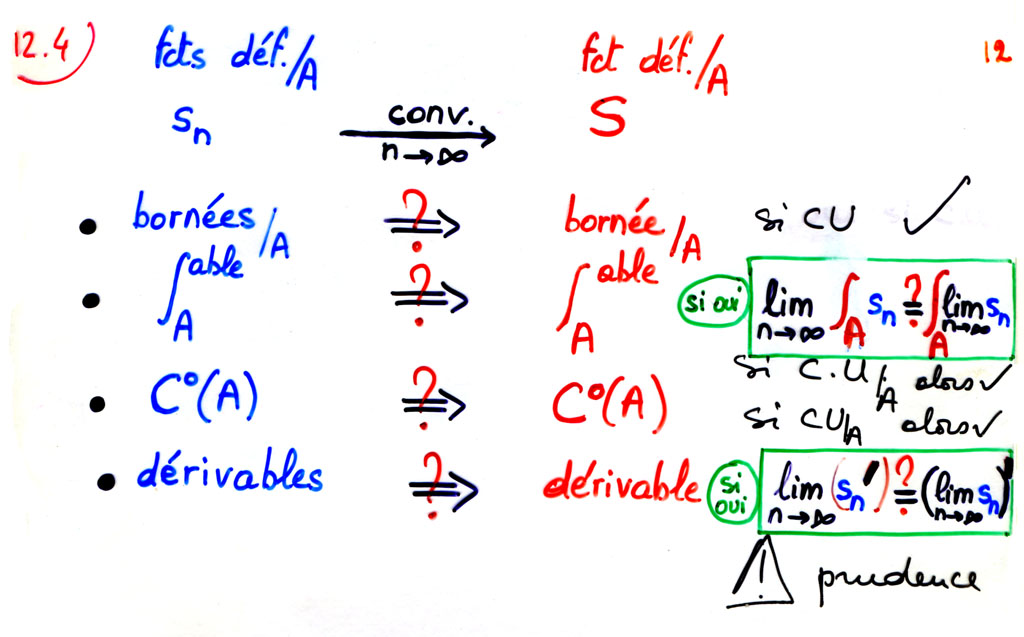 12.4) fcts déf./A fct déf./A 12
sₙ conv. n→∞ S
• bornées/A ?⟹ bornée/A si CU ✓
• ∫_A able ?⟹ ∫_A able si oui lim n→∞ ∫_A sₙ ?= ∫_A lim n→∞ sₙ
si C.U/A alors ✓
• C°(A) ?⟹ C°(A) si CU/A alors ✓
• dérivables ?⟹ dérivable si oui lim n→∞ (sₙ') ?= (lim n→∞ sₙ)'
! prudence